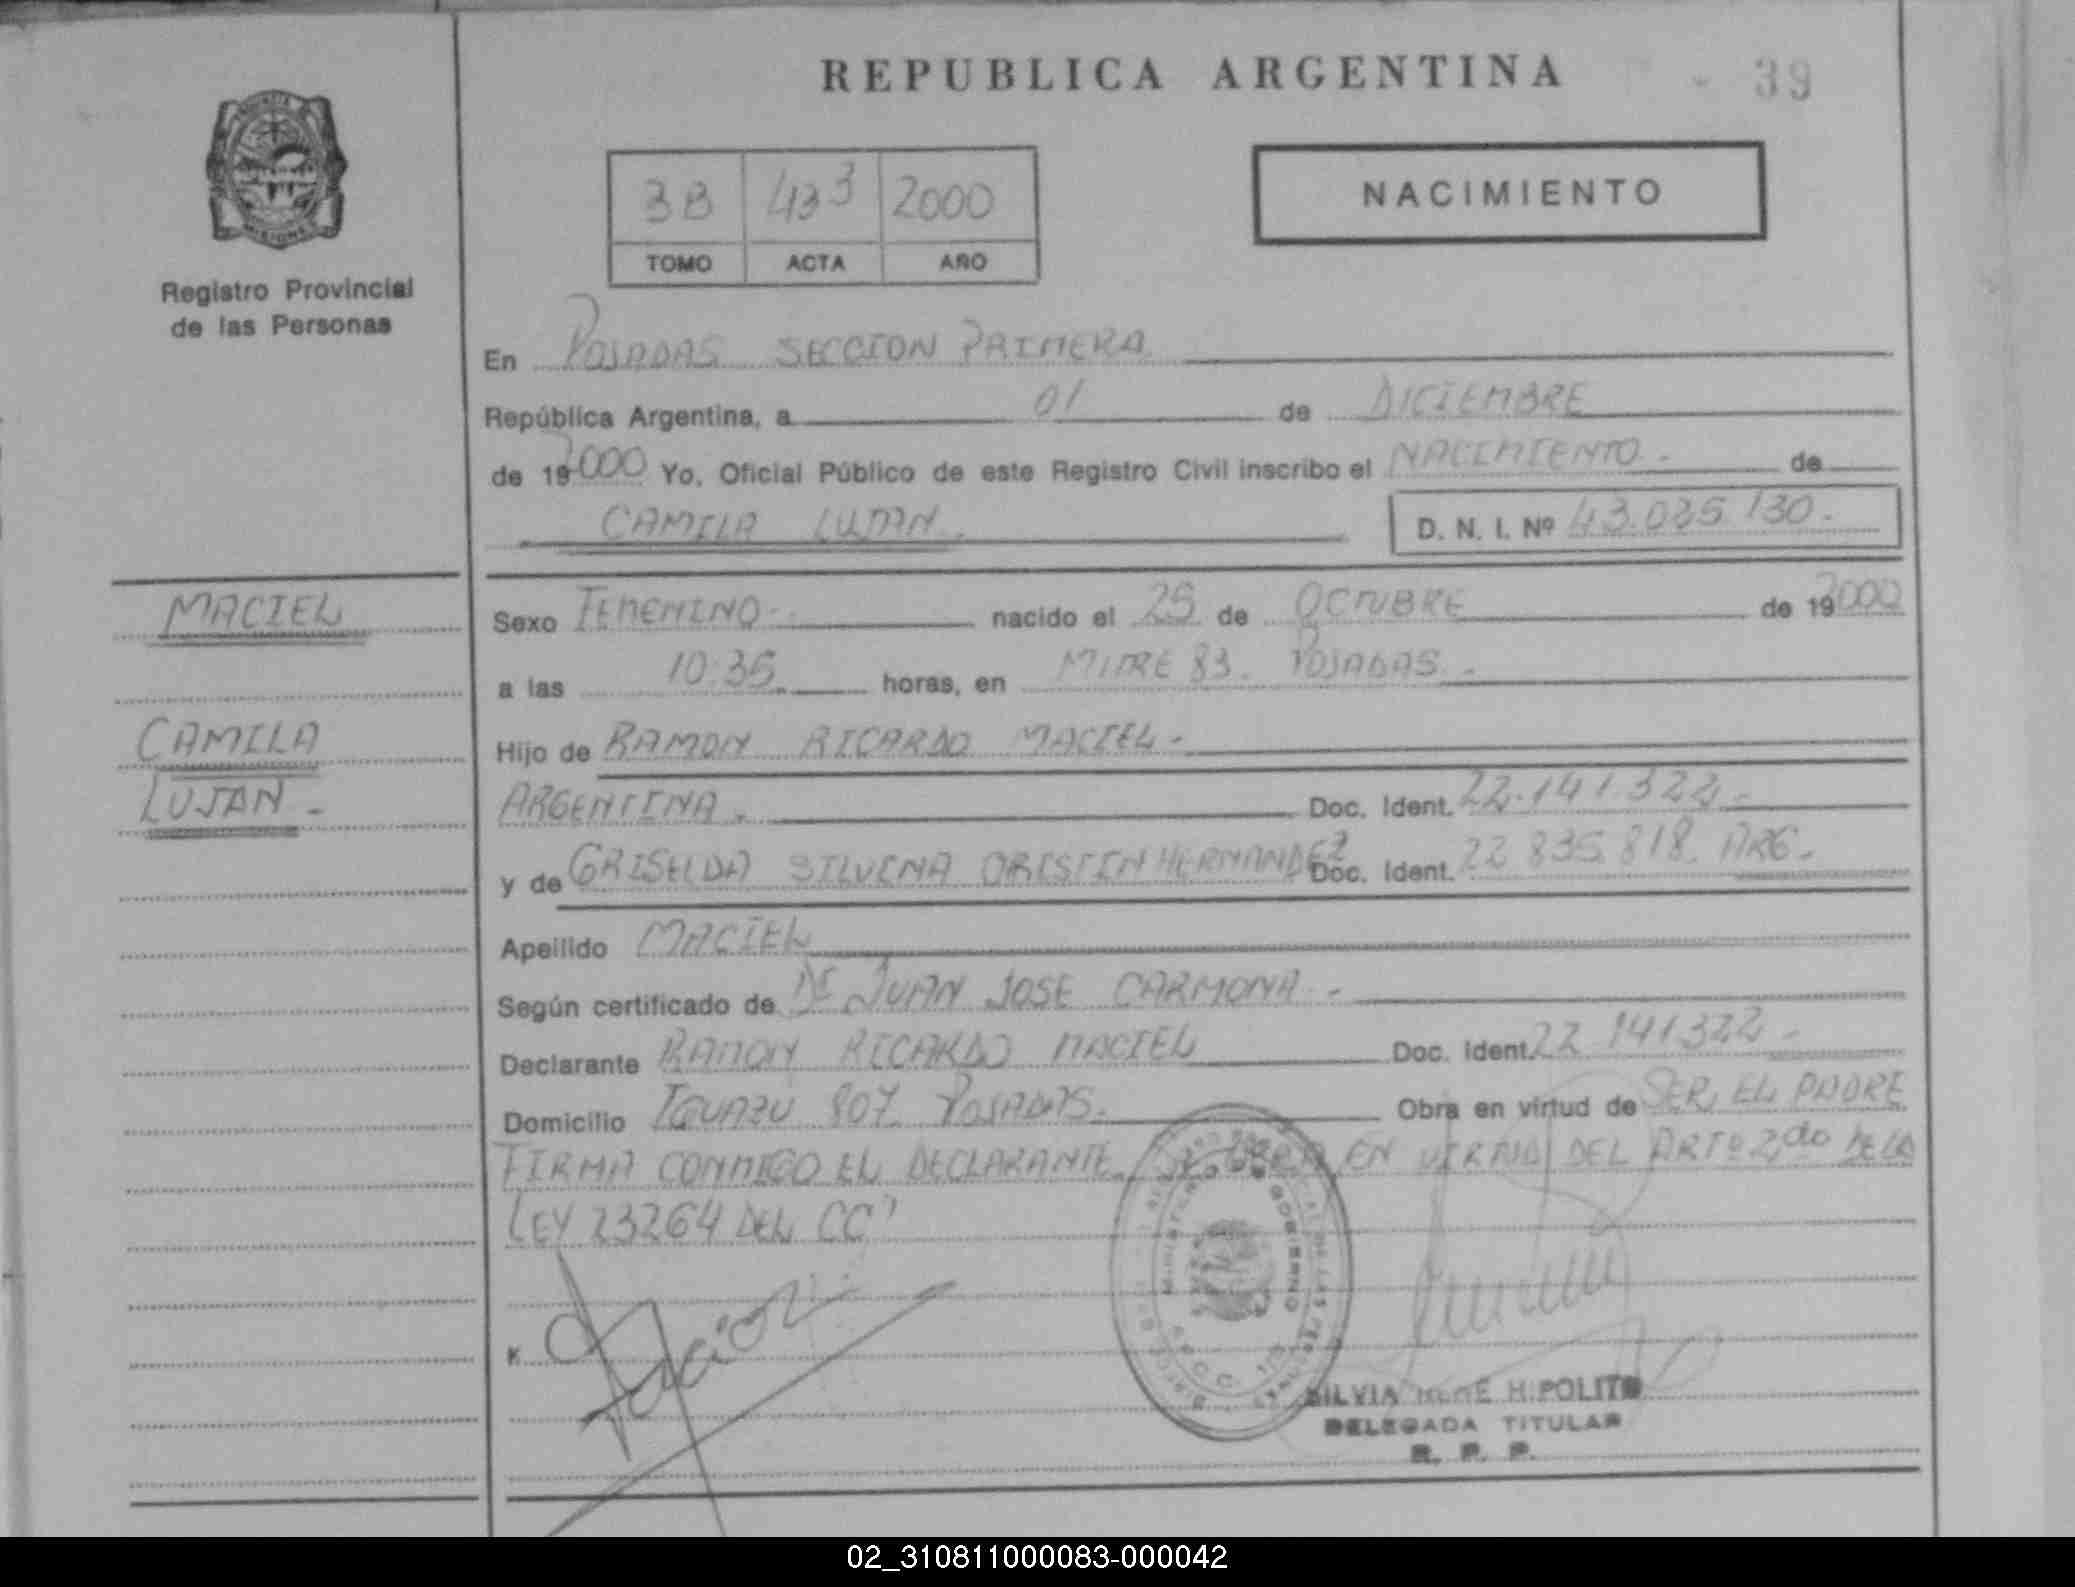 REPUBLICA ARGENTINA - 39
3B 433 2000
TOMO ACTA AÑO
NACIMIENTO
Registro Provincial
de las Personas
En POSADAS SECCION PRIMERA
República Argentina, a 01 de DICIEMBRE
de 19 2000 Yo, Oficial Público de este Registro Civil inscribo el NACIMIENTO - de
CAMILA LUJAN. D. N. I. Nº 43.035.130.
MACIEL
CAMILA
LUJAN -
Sexo FEMENINO - nacido el 25 de OCTUBRE de 19 2000
a las 10:35 horas, en MITRE 83. POSADAS. -
Hijo de RAMON RICARDO MACIEL -
ARGENTINA. Doc. Ident. 22.141.322 -
y de GRISELDA SILVINA HERNANDEZ Doc. Ident. 22 835.818. ARG. -
Apellido MACIEL
Según certificado de Dr JUAN JOSE CARMONA -
Declarante RAMON RICARDO MACIEL Doc. Ident. 22 141322 -
Domicilio IGUAZU 807 POSADAS. Obra en virtud de SER EL PADRE
FIRMA CONMIGO EL DECLARANTE EN VIRTUD DEL ARTº 2do DE LA
LEY 23264 DEL CC
MINISTERIO DE GOBIERNO
SILVIA RENE HIPOLITO
DELEGADA TITULAR
R. P. P.
02_310811000083-000042